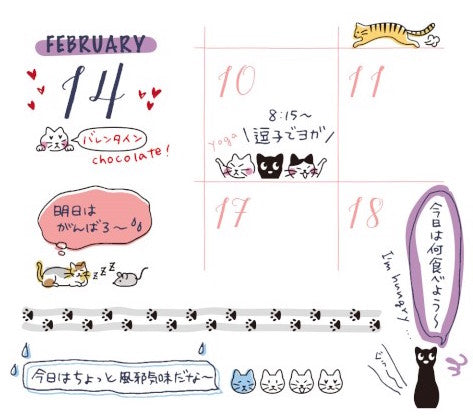 FEBRUARY
14
バレンタイン
chocolate!
10
11
8:15～
yoga
\逗子でヨガ/
17
18
明日は
がんばろ～
zzz
今日は何食べよう～
I'm hungry...
ぐぅ
今日はちょっと風邪気味だな～